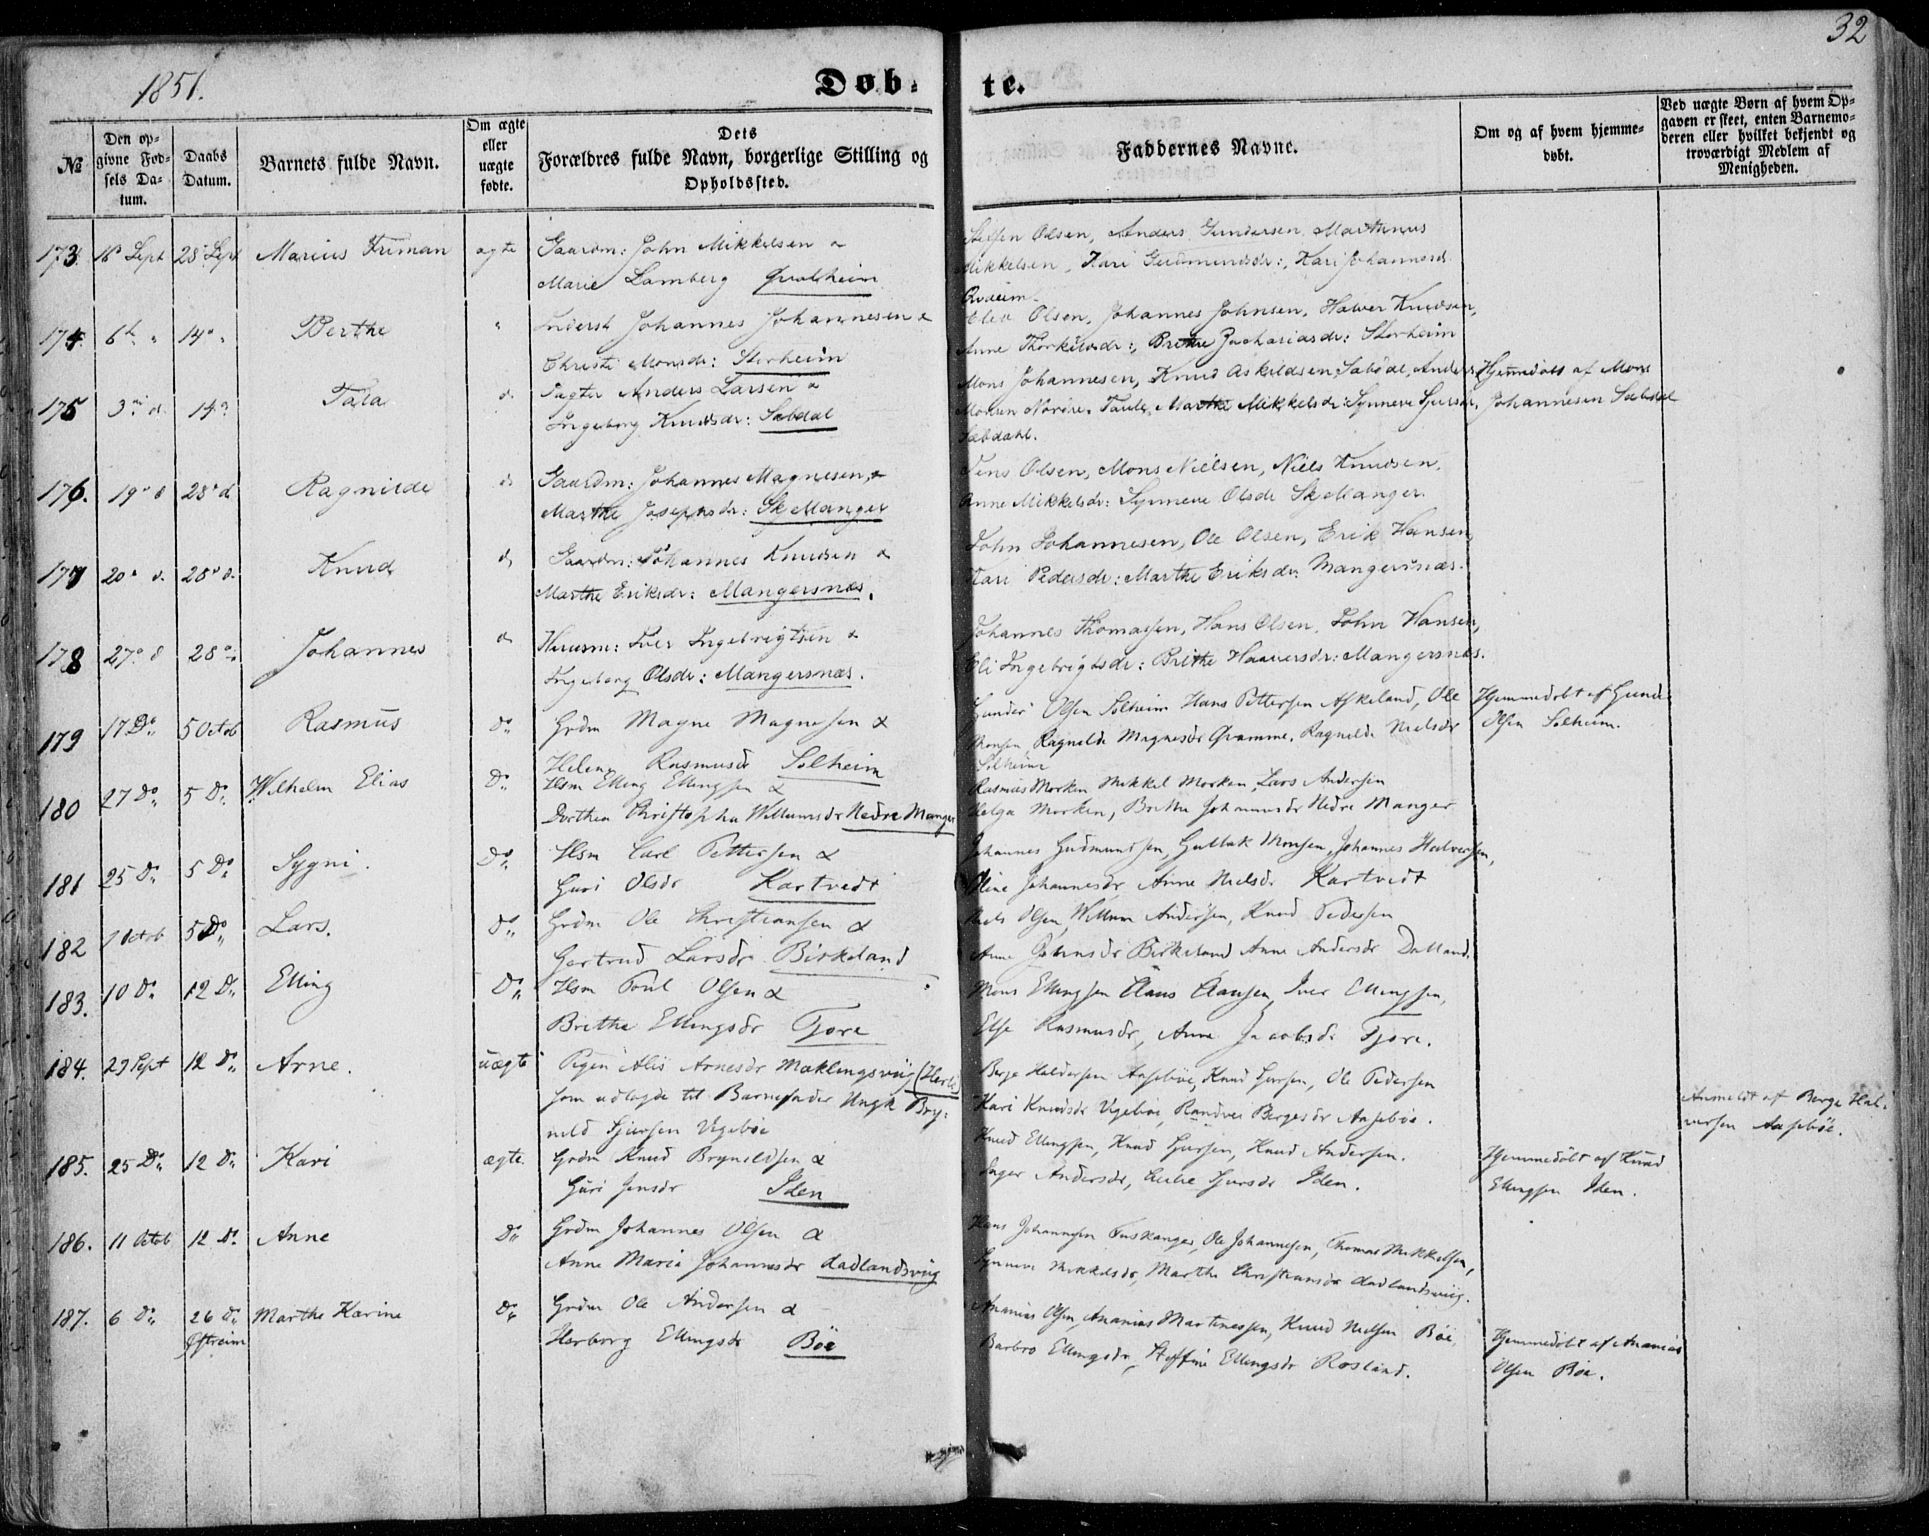 32
1851.
Døb-
te.
№
Den op-
givne Fød-
sels Da-
tum.
Daabs
Datum.
Barnets fulde Navn.
Om ægte
eller
uægte
fødte.
Dets
Forældres fulde Navn, borgerlige Stilling og
Opholdssted.
Faddernes Navne.
Om og af hvem hjemme-
døbt.
Ved uægte Børn af hvem Op-
gaven er skeet, enten Barnemo-
deren eller hvilket bekjendt og
troværdigt Medlem af
Menigheden.
173 18 Sept 28 Sept Marius Truman ægte Gaardm: John Mikkelsen &
Marie Lamberg Qvalheim
Olsen, Anders Gundersen, Marthinus
Mikkelsen, Kari Gudmundsdr:, Kari Johannesd.
174 6 14 Berthe Inderst Johannes Johannesen &
Christi Monsdr: Storheim
Olsen, Johannes Johnsen, Halvor Knudsen,
Anne Thorkildsdr:, Brithe Zachariasdr: Storheim
175 3 d. 14 d. Anders Larsen &
Ingeborg Knudsdr: Sæbdal
Mons Johannesen, Knud Askildsen Sæbdal, Anders
Monsen Nordre, Marthe Mikkelsdr: Synneve
Sæbdahl.
Hjemmedøbt af Mons
Johannesen Sæbdal
176. 19 d 28 d Ragnilde d Gaardm: Johannes Magnesen &
Marthe Josephsdr: Sk Manger
Jens Olsen, Mons Nielsen, Niels Knudsen,
Anne Mikkelsdr: Synneve Olsdr Sk Manger.
177 20 d. 28 d. Knud d Gaardm: Johannes Knudsen &
Marthe Eriksdr: Mangersnæs.
John Johannesen, Ole Olsen, Erik Hansen,
Kari Pedersdr: Marthe Eriksdr: Mangersnæs.
178 27 d 28 Johannes d Huusm: Iver Ingebrigtsen &
Ingeborg Olsdr: Mangersnæs.
Johannes Thomassen, Hans Olsen, John Hansen,
Eli Ingebrigtsdr: Brithe Haaversdr: Mangersnæs.
179 17 Do 5 Octob Rasmus do Grdm Magne Magnesen &
Helene Rasmusdr Solheim
Gunder Olsen Solheim Hans Pettersen Askeland, Ole
Monsen, Ragnelde Magnesdr Qvamme, Ragnelde Nielsdr
Solheim
Hjemmedøbt af Gunder
Olsen Solheim.
180 27 Do 5 Do Wilhelm Elias Do Hsm Elling Ellingsen &
Dorthea Christopha Willumsdr Nedre Manger
Rasmus Morken Mikkel Morken, Lars Andersen
Helga Morken, Brithe Johannesdr Nedre Manger
181 25 Do 5 Do Sygni. Do Hsm Carl Pettersen &
Guri Olsdr Kartvedt
Johannes Gudmundsen, Gullak Monsen, Johannes Halversen,
Oline Johannesdr, Anne Nielsdr Kartvedt
182 1 Octob 5 Do Lars. Do Grdm Ole Christiansen &
Gertrud Larsdr Birkeland
Niels Olsen, Willum Andersen, Knud Pedersen
Anne Johnsdr Birkeland Anne Andersdr Dalland.
183. 10 Do 12 Do Elling Do Hsm Poul Olsen &
Brithe Ellingsdr Fjøre
Mons Ellingsen Claus Clausen, Iver Ellingsen,
Else Rasmusdr, Anne Jacobsdr Fjøre.
184. 29 Sept 12 Do Arne. uægte Pigen Alis Arnesdr Maklingsviig (Herlø)
som udlagde til Barnefader Ungk Bry:
nild Sjursen Vigebøe
Berge Haldorsen Aasebøe, Knud Sjursen, Ole Pedersen
Kari Knudsdr Vigebøe, Randvei Bergesdr Aasebøe.
Anmeldt af Berge Hal:
versen Aasebøe.
185. 25 Do 12 Do Kari ægte. Grdm Knud Brynildsen &
Guri Jensdr Iden
Knud Ellingsen, Knud Sjursen, Knud Andersen.
Inger Andersdr, Sjursdr Iden.
Hjemmedøbt af Knud
Ellingsen Iden.
186. 11 Octob 12 Do Anne Do Grdm Johannes Olsen &
Anne Maria Johannesdr Aadlandsviig
Hans Johannesen Fuskanger, Ole Johannesen, Thomas Mikkelsen,
Synneve Mikkelsdr, Marthe Christiansdr Aadlandsviig.
187. 6 Do 26 Do Marthe Karine Do Grdm Ole Andersen &
Østreim
Herborg Ellingsdr Bøe
Ananias Olsen, Ananias Martinussen, Knud Nielsen Bøe,
Barbro Ellingsdr, Steffine Ellingsdr Rosland.
Hjemmedøbt af Ananias
Olsen Bøe.